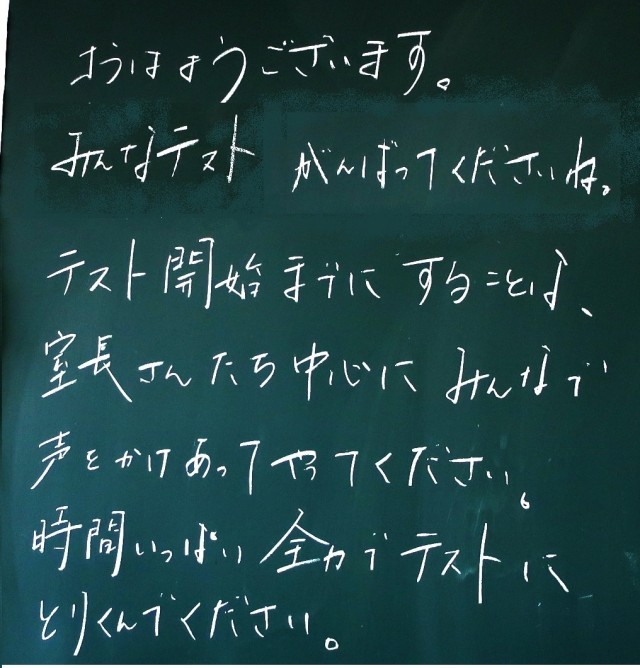 おはようございます。
みんなテスト がんばってくださいね。
テスト開始までに することは、
室長さんたち中心に みんなで
声をかけあってやってください。
時間いっぱい 全力でテストに
とりくんでください。